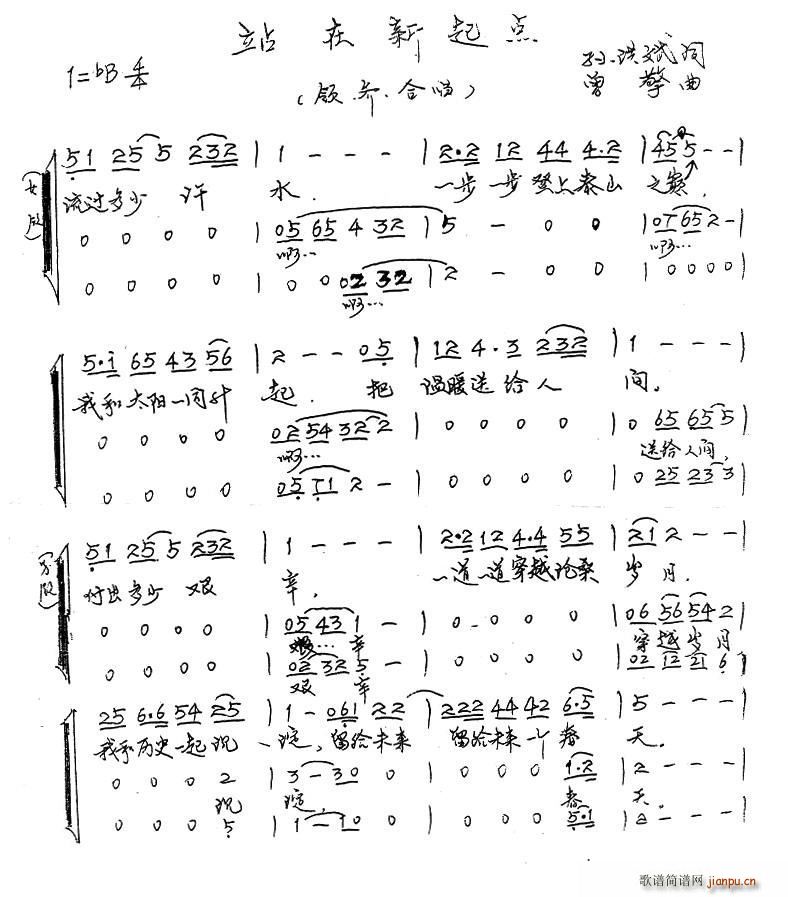 站在新起点
1=bB 4/4
(领、齐、合唱)
孙洪斌词
曾擎曲
(女领)
51 25 5 232 | 1 - - - | 2·2 12 44 4·2 | 455 - - |
流过多少 汗 水. 一步一步登上泰山之巅.
0 0 0 0 | 05 65 4 32 | 5 - 0 0 | 07 65 2 - |
啊… 啊…
0 0 0 0 | 0 0 02 32 | 2 - 0 0 | 0 0 0 0 |
啊…
5·i 65 43 56 | 2 - - 05 | 12 4·3 232 | 1 - - - |
我和太阳一同升 起. 把 温暖送给人 间.
0 0 0 0 | 02 54 32 2 | 0 0 0 0 | 0 65 65 5 |
啊… 送给人间,
0 0 0 0 | 05 71 2 - | 0 0 0 0 | 0 25 23 3 |
(男领)
51 25 5 232 | 1 - - - | 2·2 12 4·4 55 | 21 2 - - |
付出多少 艰 辛. 一道一道穿越沧桑 岁月.
0 0 0 0 | 05 43 1 - | 0 0 0 0 | 06 56 54 2 |
艰… 辛 穿越岁月
0 0 0 0 | 02 32 5 - | 0 0 0 0 | 02 12 21 6 |
艰 辛
25 6·6 54 25 | 1 - 061 22 | 222 44 42 6·5 | 5 - - - |
我和历史一起沉 淀, 留给未来 留给未来一个春 天.
0 0 0 2 | 3 - 30 0 | 0 0 0 1·2 | 2 - - - |
沉 淀, 春 天.
0 0 0 5 | 1 - 10 0 | 0 0 0 5·1 | 2 - - - |
歌谱简谱网
jianpu.cn